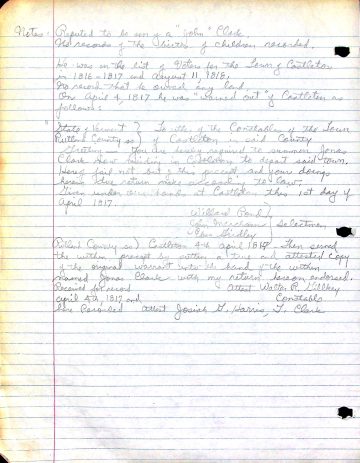 Notes: Reputed to be son of a "John" Clark
No records of the births of children recorded.
He was on the list of Voters for the Town of Castleton
in 1816-1817 and August 11, 1818.
No record that he owned any land.
On April 4, 1817 he was "warned out" of Castleton as
follows:
"State of Vermont } To either of the Constables of the Town
Rutland County ss) of Castleton in said County
Greeting - You are hereby required to summon Jonas
Clark now residing in Castleton to depart said town.
Hereof fail not but of this precept and your doings
herein due return make according to law.
Given under our hands at Castleton this 1st day of
April 1817.
Selectmen
Rutland County ss) Castleton 4th April 1817 Then served
the within precept by putting a true and attested copy
of the original warrant into the hand of the within
named Jonas Clark with my return hereon endorsed.
Received for record Attest Walter R.
April 4th, 1817 and Constable
here Recorded attest Josiah G. Harris, T. Clerk